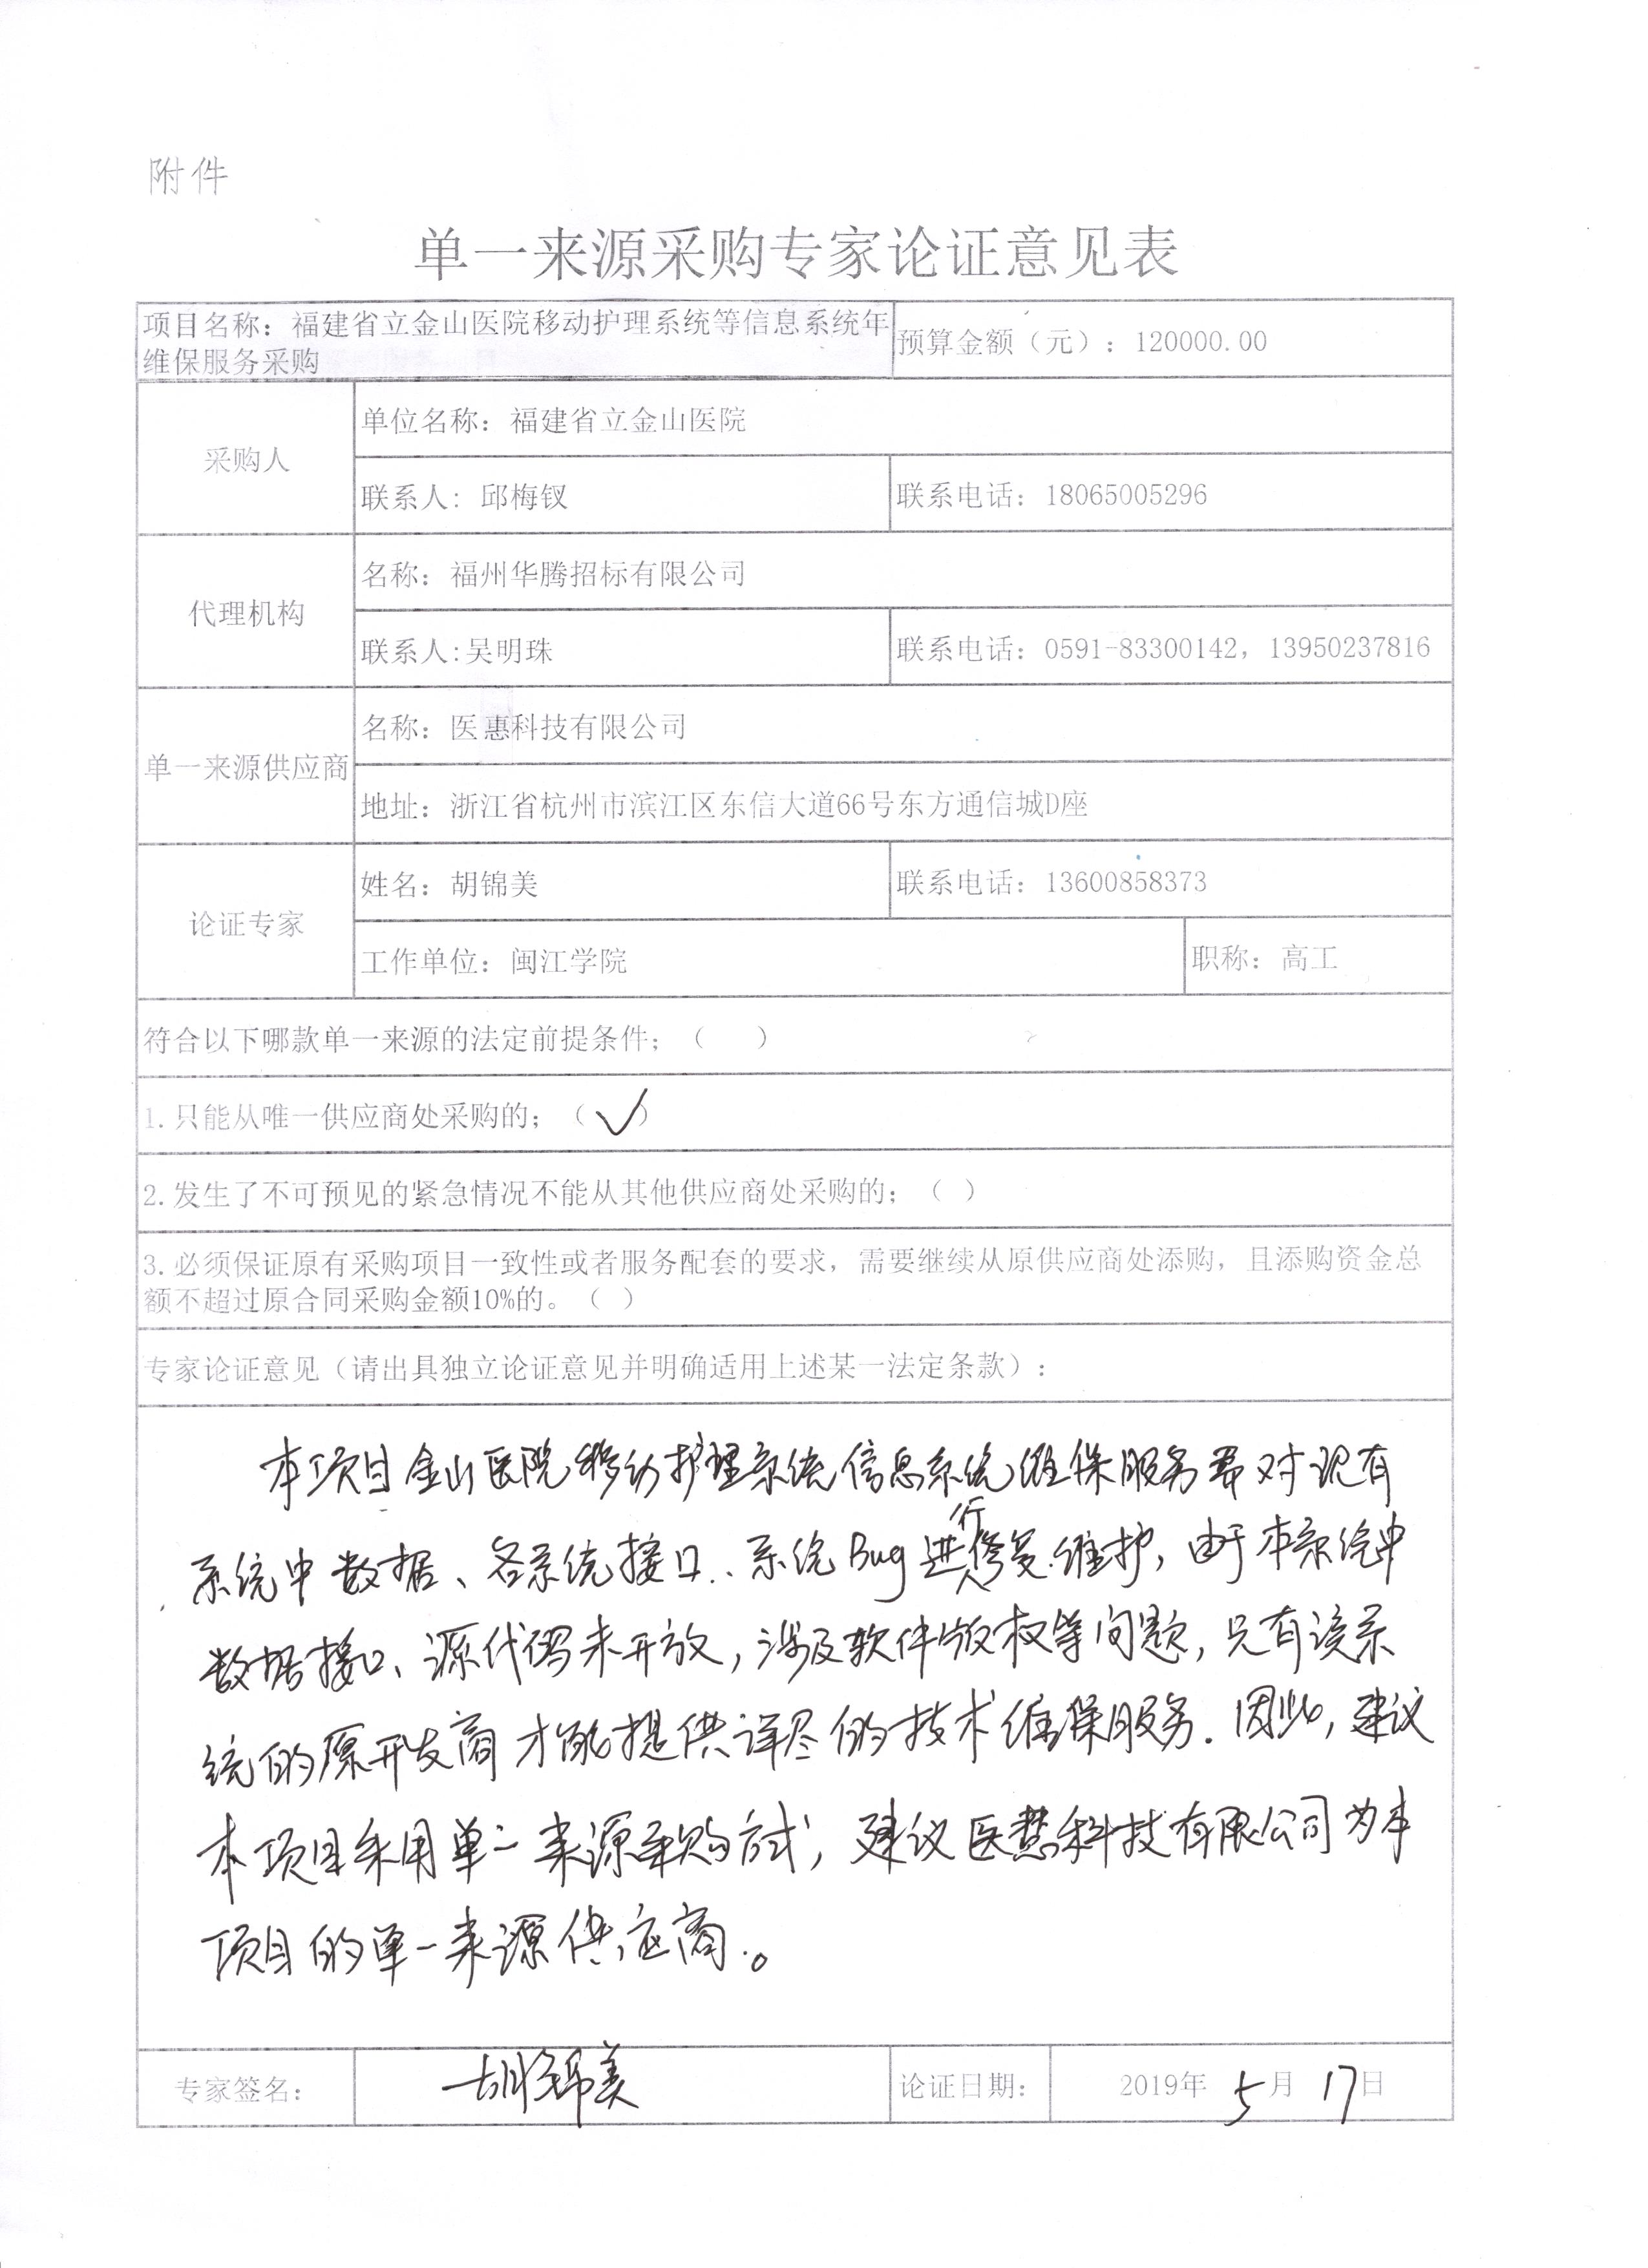 附件
单一来源采购专家论证意见表
项目名称：福建省立金山医院移动护理系统等信息系统年
维保服务采购
预算金额（元）：120000.00
采购人
单位名称：福建省立金山医院
联系人：邱梅钗
联系电话：18065005296
代理机构
名称：福州华腾招标有限公司
联系人:吴明珠
联系电话：0591-83300142，13950237816
单一来源供应商
名称：医惠科技有限公司
地址：浙江省杭州市滨江区东信大道66号东方通信城D座
论证专家
姓名：胡锦美
联系电话：13600858373
工作单位：闽江学院
职称：高工
符合以下哪款单一来源的法定前提条件；（ ）
1.只能从唯一供应商处采购的；（✓）
2.发生了不可预见的紧急情况不能从其他供应商处采购的；（ ）
3.必须保证原有采购项目一致性或者服务配套的要求，需要继续从原供应商处添购，且添购资金总
额不超过原合同采购金额10%的。（ ）
专家论证意见（请出具独立论证意见并明确适用上述某一法定条款）：
本项目金山医院移动护理系统信息系统维保服务需对现有
系统中数据、各系统接口、系统Bug进行修复维护，由于本系统中
数据接口、源代码未开放，涉及软件版权等问题，只有该系
统的原开发商才能提供详尽的技术维保服务．因此，建议
本项目采用单一来源采购方式，建议医慧科技有限公司为本
项目的单一来源供应商。
专家签名：
胡锦美
论证日期：
2019年5月17日